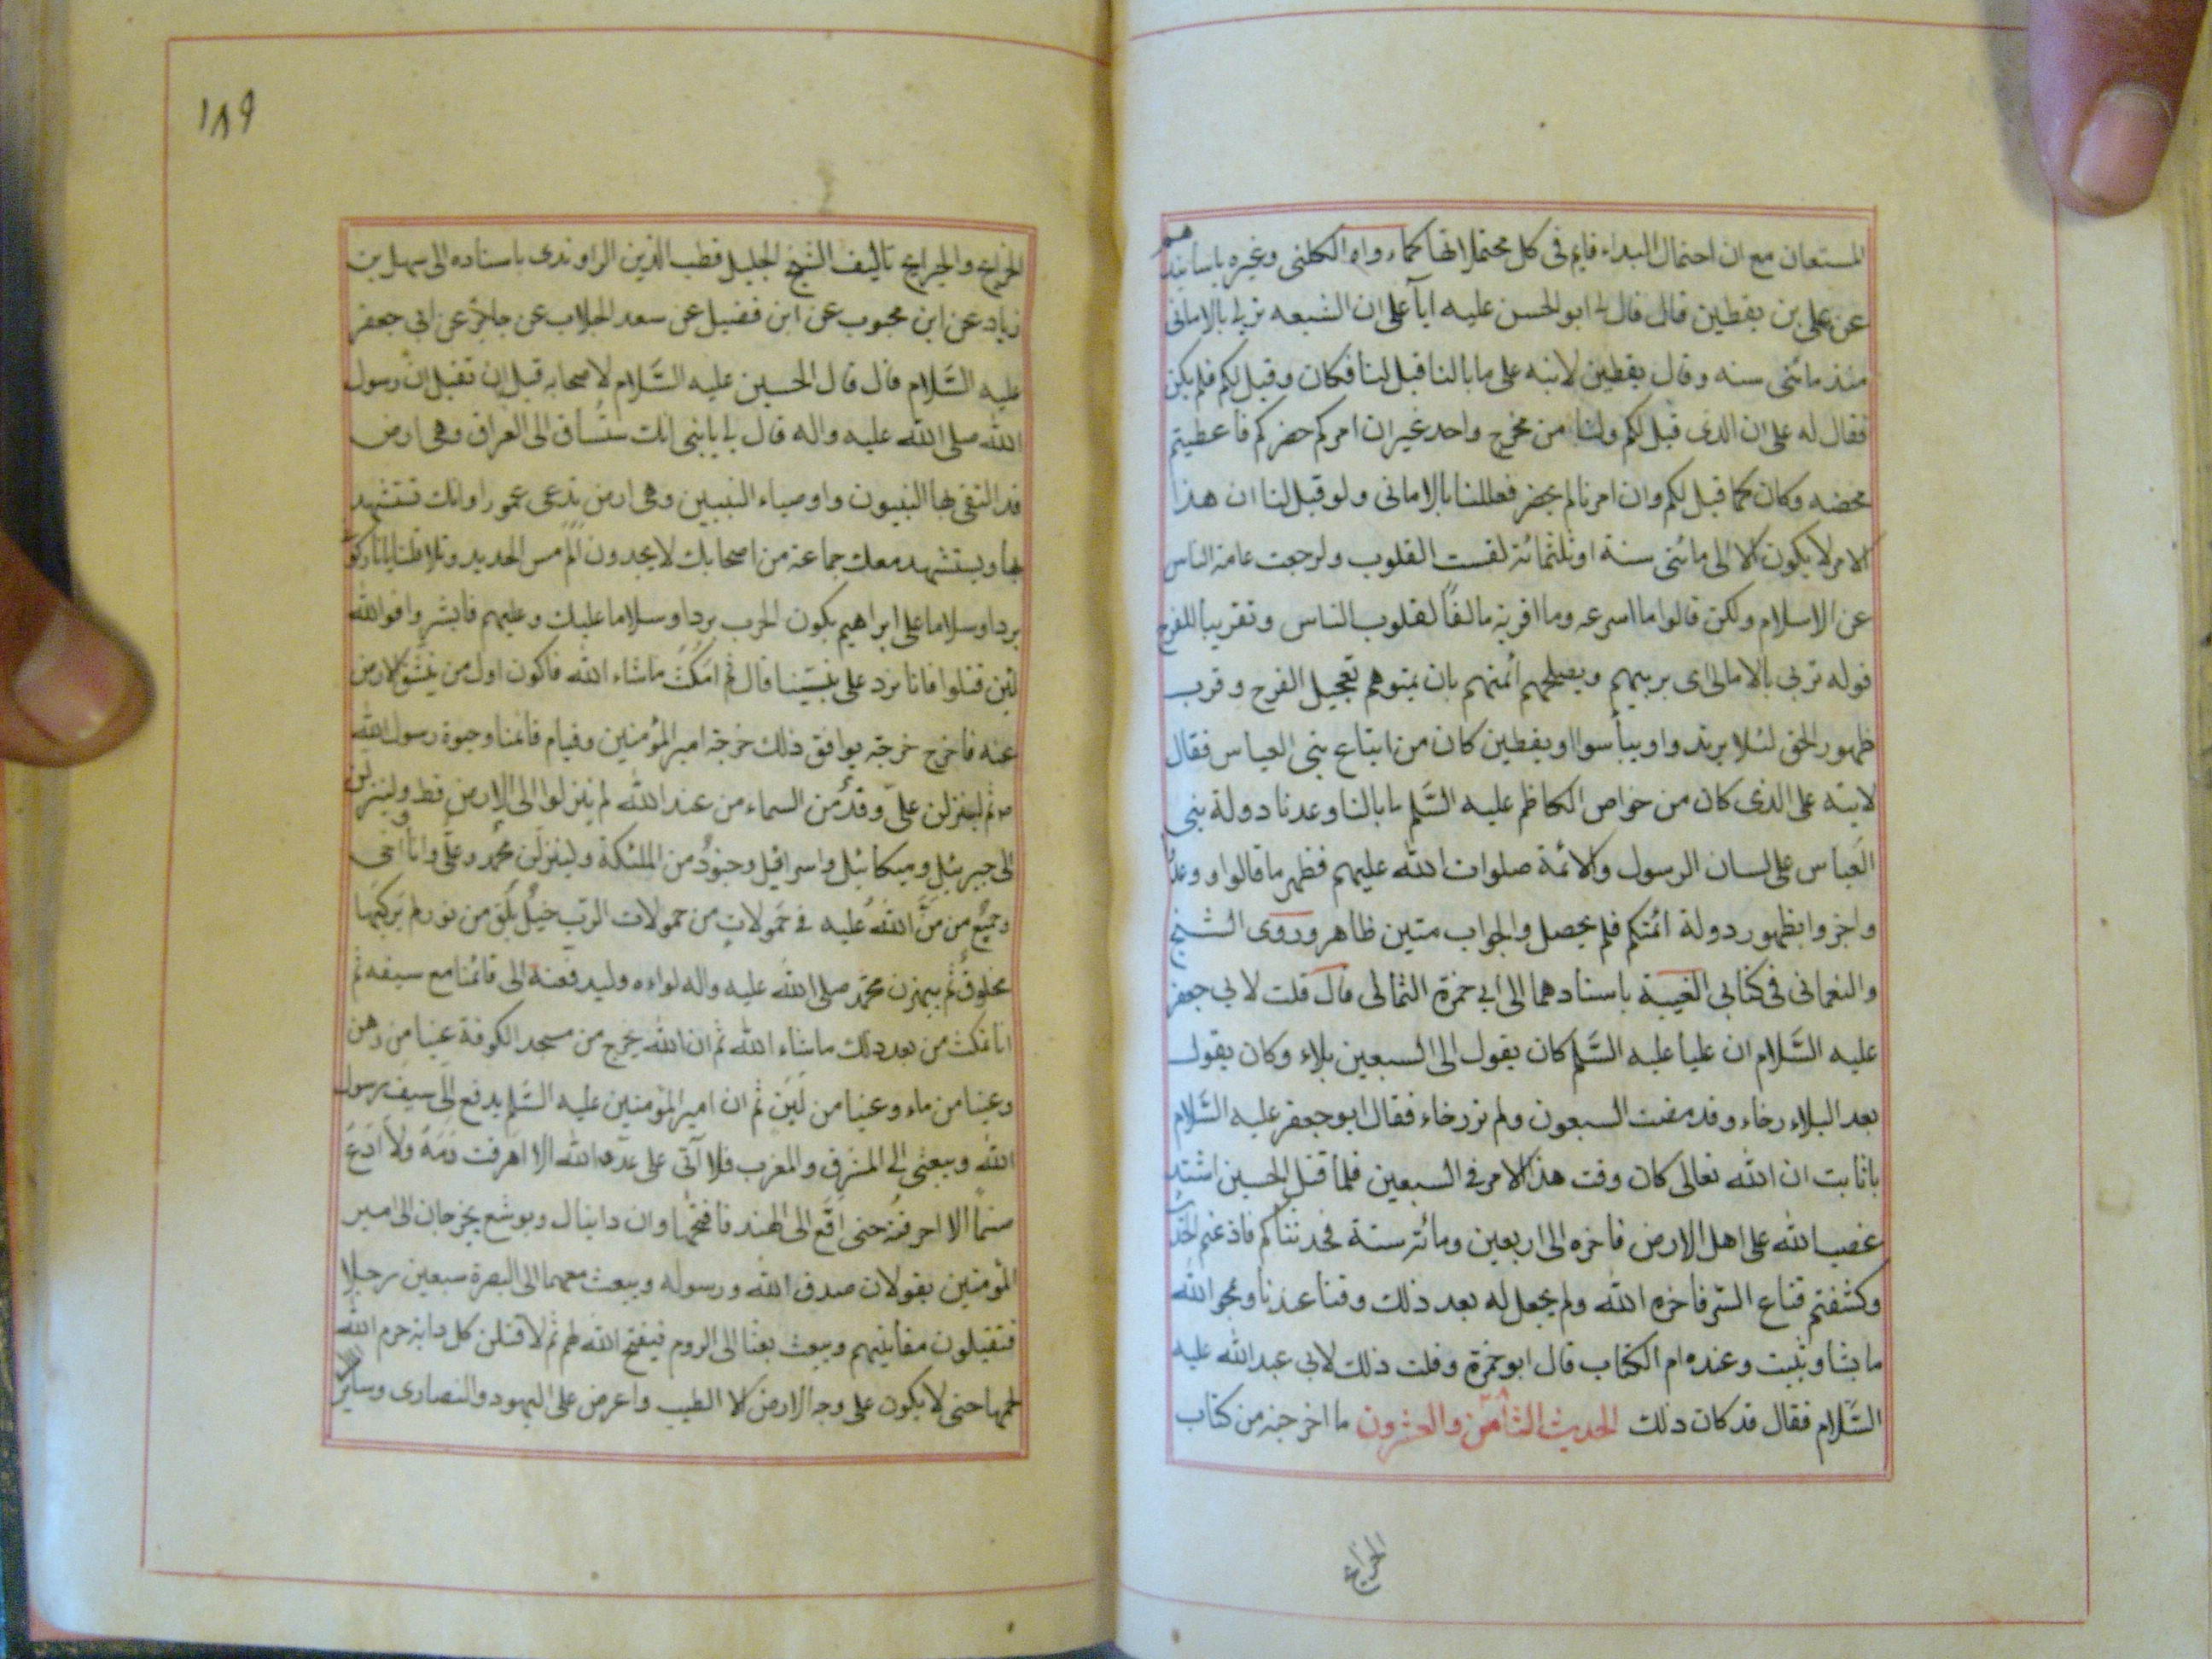 المستعان مع ان احتمال البداء قايم فى كل محتملاتها كما رواه الكلينى وغيره باسانيدهم
عن على بن يقطين قال قال لى ابو الحسن عليه يا على ان الشيعه تربى بالامانى
منذ مائتى سنه وقال يقطين لابنه على ما بالنا قيل لنا فكان وقيل لكم فلم يكن
فقال له على ان الذى قيل لكم ولنا من مخرج واحد غير ان امركم حضركم فاعطيتم
محضه وكان كما قيل لكم وان امرنا لم يحضر فعللنا بالامانى ولو قيل لنا ان هذا
الامر لا يكون الا الى مائتى سنة او ثلثمائة لقست القلوب ولرجعت عامة الناس
عن الاسلام ولكن قالوا ما اسرعه وما اقربه تالفا لقلوب الناس وتقريبا للفرج
قوله تربى بالامالى اى يربيهم ويصلحهم ائمتهم بان يمنوهم تعجيل الفرج وقرب
ظهور الحق لئلا يرتدوا ويياسوا ويقطين كان من اتباع بنى العباس فقال
لابنه على الذى كان من خواص الكاظم عليه السلم ما بالنا وعدنا دولة بنى
العباس على لسان الرسول والائمة صلوات الله عليهم فظهر ما قالوا ووعدوا
واخبروا بظهور دولة ائمتكم فلم يحصل والجواب متين ظاهر وروى الشيخ
والنعمانى فى كتابى الغيبة باسنادهما الى ابى حمزة الثمالى قال قلت لابى جعفر
عليه السلام ان عليا عليه السلم كان يقول الى السبعين بلاء وكان يقول
بعد البلاء رخاء وقد مضت السبعون ولم نر رخاء فقال ابو جعفر عليه السلام
يا ثابت ان الله تعالى كان وقت هذا الامر فى السبعين فلما قتل الحسين اشتد
غضب الله على اهل الارض فاخره الى اربعين ومائة سنة فحدثناكم فاذعتم الحديث
وكشفتم قناع الستر فاخره الله ولم يجعل له بعد ذلك وقتا عندنا ويمحو الله
ما يشا ويثبت وعنده ام الكتاب قال ابو حمزة وقلت ذلك لابى عبد الله عليه
السلام فقال قد كان ذلك الحديث الثامن والعشرون ما اخرجته من كتاب
الخرايج
١٨٩
الخرايج والجرايح تاليف الشيخ الجليل قطب الدين الراوندى باسناده الى سهل بن
زياد عن ابن محبوب عن ابن فضيل عن سعد الجلاب عن جابر عن ابى جعفر
عليه السلام قال قال الحسين عليه السلام لاصحابه قبل ان يقتل ان رسول
الله صلى الله عليه واله قال لى يا بنى انك ستساق الى العراق وهى ارض
قد التقى بها النبيون واوصياء النبيين وهى ارض تدعى عمورا وانك تستشهد
بها ويستشهد معك جماعة من اصحابك لا يجدون الم مس الحديد وتلا قلنا يا نار كونى
بردا وسلاما على ابراهيم يكون الحرب بردا وسلاما عليك وعليهم فابشروا فوالله
لئن قتلوا فانا نرد على نبينا قال ثم امكث ما شاء الله فاكون اول من ينشق الارض
عنه فاخرج خرجة يوافق ذلك خرجة امير المؤمنين وقيام قائمنا وحيوة رسول الله
ص ثم لينزلن على وفد من السماء من عند الله لم ينزلوا الى الارض قط ولينزلن
الى جبرئيل وميكائيل واسرافيل وجنود من الملئكة ولينزلن محمد وعلى وانا واخى
وجميع من من الله عليه فى حمولات من حمولات الرب خيل بلق من نور لم يركبها
مخلوق ثم ليهزن محمد صلى الله عليه واله لواءه وليدفعنه الى قائمنا مع سيفه ثم
انا نمكث من بعد ذلك ما شاء الله ثم ان الله يخرج من مسجد الكوفة عينا من دهن
وعينا من ماء وعينا من لبن ثم ان امير المؤمنين عليه السلم يدفع الى سيف رسول
الله ويبعثنى الى المشرق والمغرب فلا آتى على عدو الله الا اهرقت دمه ولا ادع
صنما الا احرقته حتى اقع الى الهند فافتحها وان دانيال ويوشع يخرجان الى امير
المؤمنين يقولان صدق الله ورسوله ويبعث معهما الى البصرة سبعين رجلا
فيقتلون مقاتليهم ويبعث بعثا الى الروم فيفتح الله لهم ثم لاقتلن كل دابة حرم الله
لحمها حتى لا يكون على وجه الارض الا الطيب واعرض على اليهود والنصارى وساير